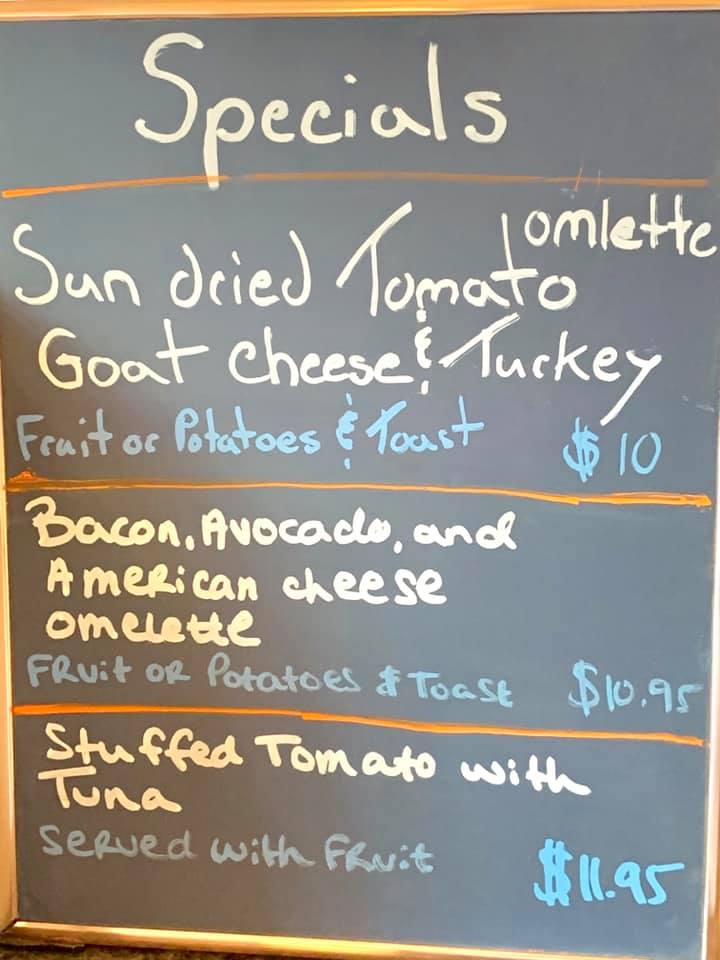 Specials
omlette
Sun dried Tomato
Goat cheese & Turkey
Fruit or Potatoes & Toast $10
Bacon, Avocado, and
American cheese
omelette
Fruit or Potatoes & Toast $10.95
Stuffed Tomato with
Tuna
Served with Fruit $11.95